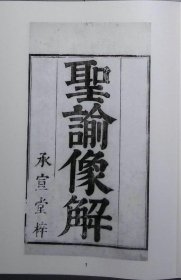 聖諭像解
承宣堂梓
1